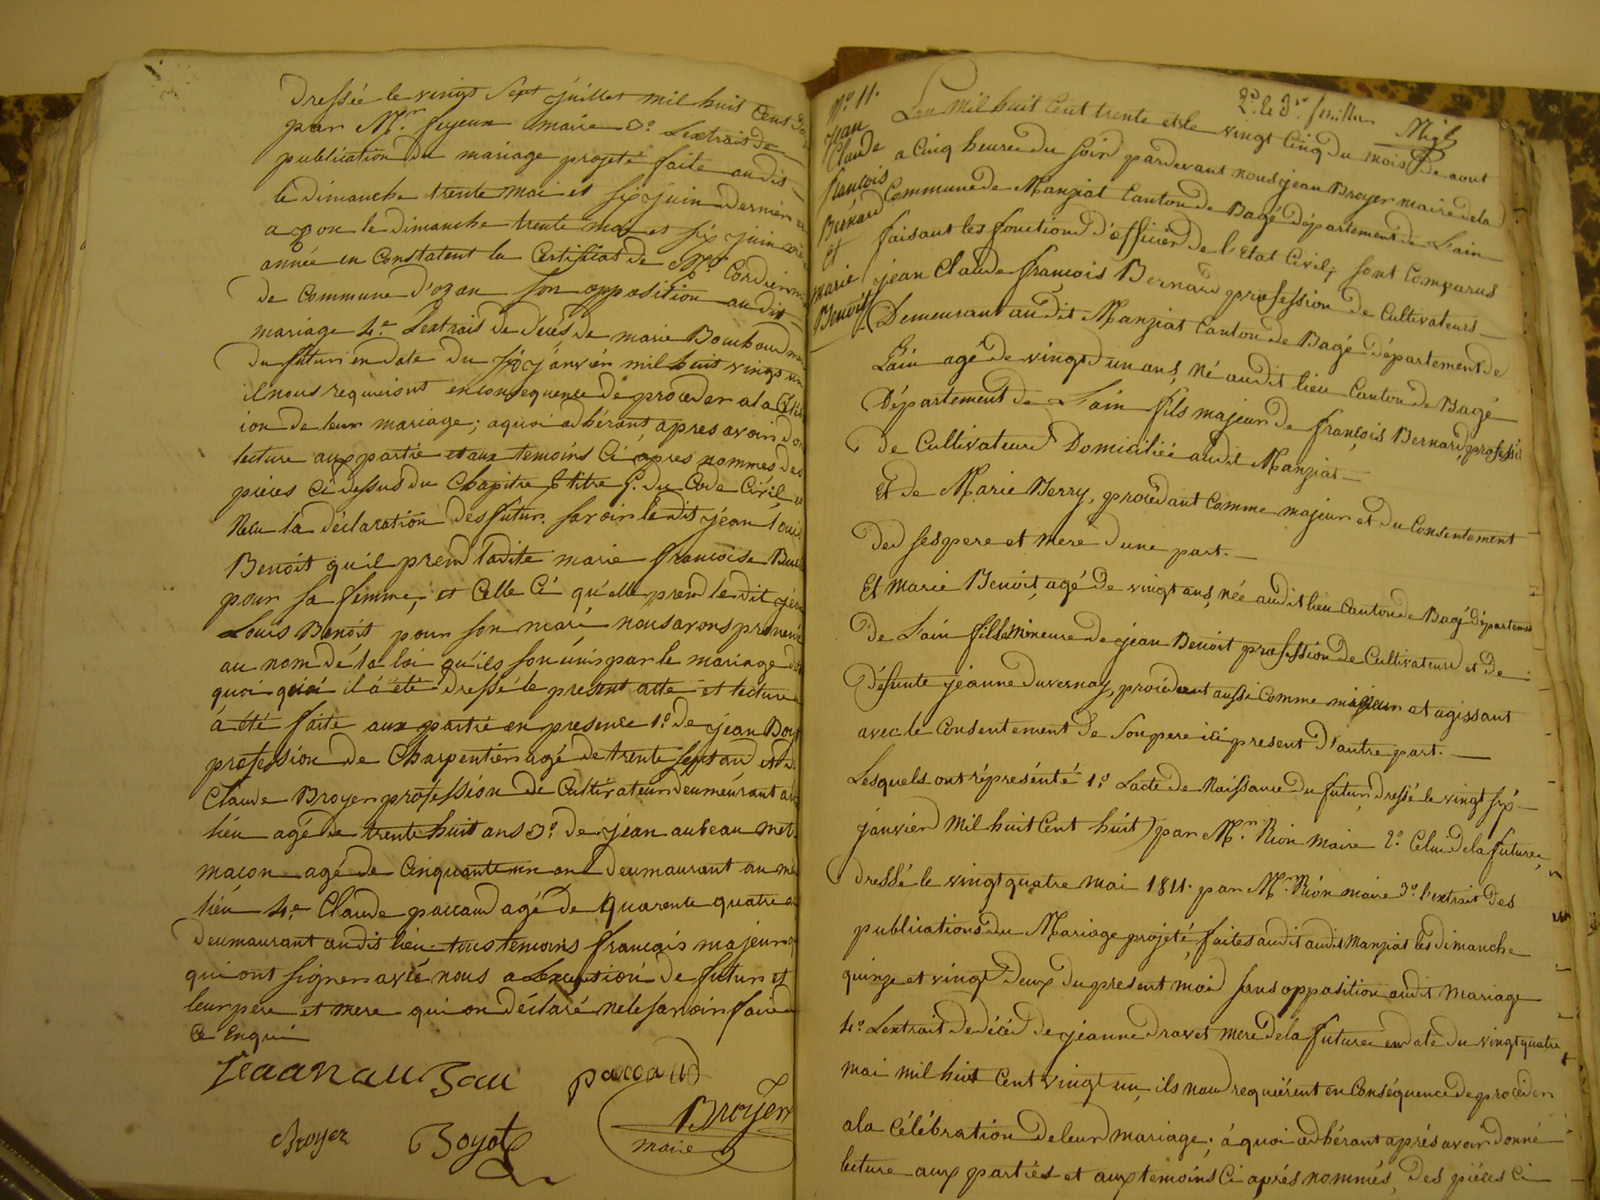 dressée le vingt sept juillet mil huit cens
par Mr. feyeux maire 3º Lextrait de
publication du mariage projeté faite audit
le dimanche trente mai et six juin dernier
a ozan le dimanche trente mai et six juin
année en Constatent le Certificat de Mr. Cordier
de Commune d'ozan son opposition audit
mariage 4º Lextrait de décès de marie Bouchoud
du futur en date du six janvier mil huit vingt
il nous requierent en consequence de proceder a la
ion de leur mariage; aquoi adhérant apres avoir
lecture aux partie et aux temoins Ci apres nommés des
pieces Ci dessus du Chapitre 6 titre 5. du Code Civil
Recu la déclaration des futur. savoir ledit jean Louis
Benoit qu'il prend ladite marie francoise
pour sa femme, et Celle Ci qu'elle prend le dit jean
Louis Benoit pour son mari nous avons prononcé
au nom dé la loi qu'ils son unis par le mariage de
quoi quoi il á été dressé le present acte et lecture
á été faite aux partie en presence 1º de jean Boyot
profession de Charpentier agé de trente sept ans et de
Claude Broyer profession de Cultivateur deumeurant au
lieu agé de trente huit ans 3º de jean aubeau met
macon agé de Cinquante un ans deumaurant au me
lieu 4º Claude paccaud agé de quarente quatre
deumaurant audit lieu tous temoins francais majeur
qui ont signer avec nous a Lexception de futur et
leur pere et mere qui on déclaré ne le savoir faire
Ce Enquis
Jeaanau Bau paccaud
Broyer
maire
Broyer Boyot
2d. le 3e. feuillet
Nº 11.
jean
Claude
francois
Bernard
et
marie
Benoist
Lan mil huit Cent trente et le vingt Cinq du mois de aout
a Cinq heures du soir pardevant nous jean Broyer maire de la
Commune de Manziat Canton de Bagé département de L'ain
faisant les fonction d'officier de l'Etat Civil, sont Comparus
jean Claude francois Bernard profession de Cultivateurs
Demeurant audit Manziat Canton de Bagé département de
L'ain agé de vingt d'un ans, Né audit lieu Canton de Bagé
Département de L'ain fils majeur de françois Bernard, professi
de Cultivateur Domiciliée audit Manziat
Et de Marie Terry, procédant Comme majeur et du Consentement
de ses pere et mere d'une part.
Et Marie Benoit, agé de vingt ans, née audit lieu Canton de Bagé département
de L'ain fille mineure de jean Benoit profession de Cultivateur et de
Défunte jeanne duvernay, procédent aussi Comme majeur et agissant
avec le Consentement de Son pere ici present D'autre part.
Lesquels ont réprésénté 1º Lacte de Naissance du futur dressé le vingt six
janvier mil huit Cent huit par Mr. Rion Maire 2º Celui de la future,
dressé le vingt quatre mai 1811. par Mr. Rion maire 3º l'extrait des
publications du Mariage projeté, faites audit audit Manziat les dimanche
quinze et vingt deux du present mois sans opposition audit Mariage
4º Lextrait de décés de jeanne dravet mere de la future en date du vingt quatre
mai mil huit Cent vingt un, ils nous requiérent en Conséquence de proceder
a la Célébration de leur mariage; á quoi adhérant aprés avoir donné
lecture aux partiés et aux temoins Ci aprés nommés, Des piéces Ci